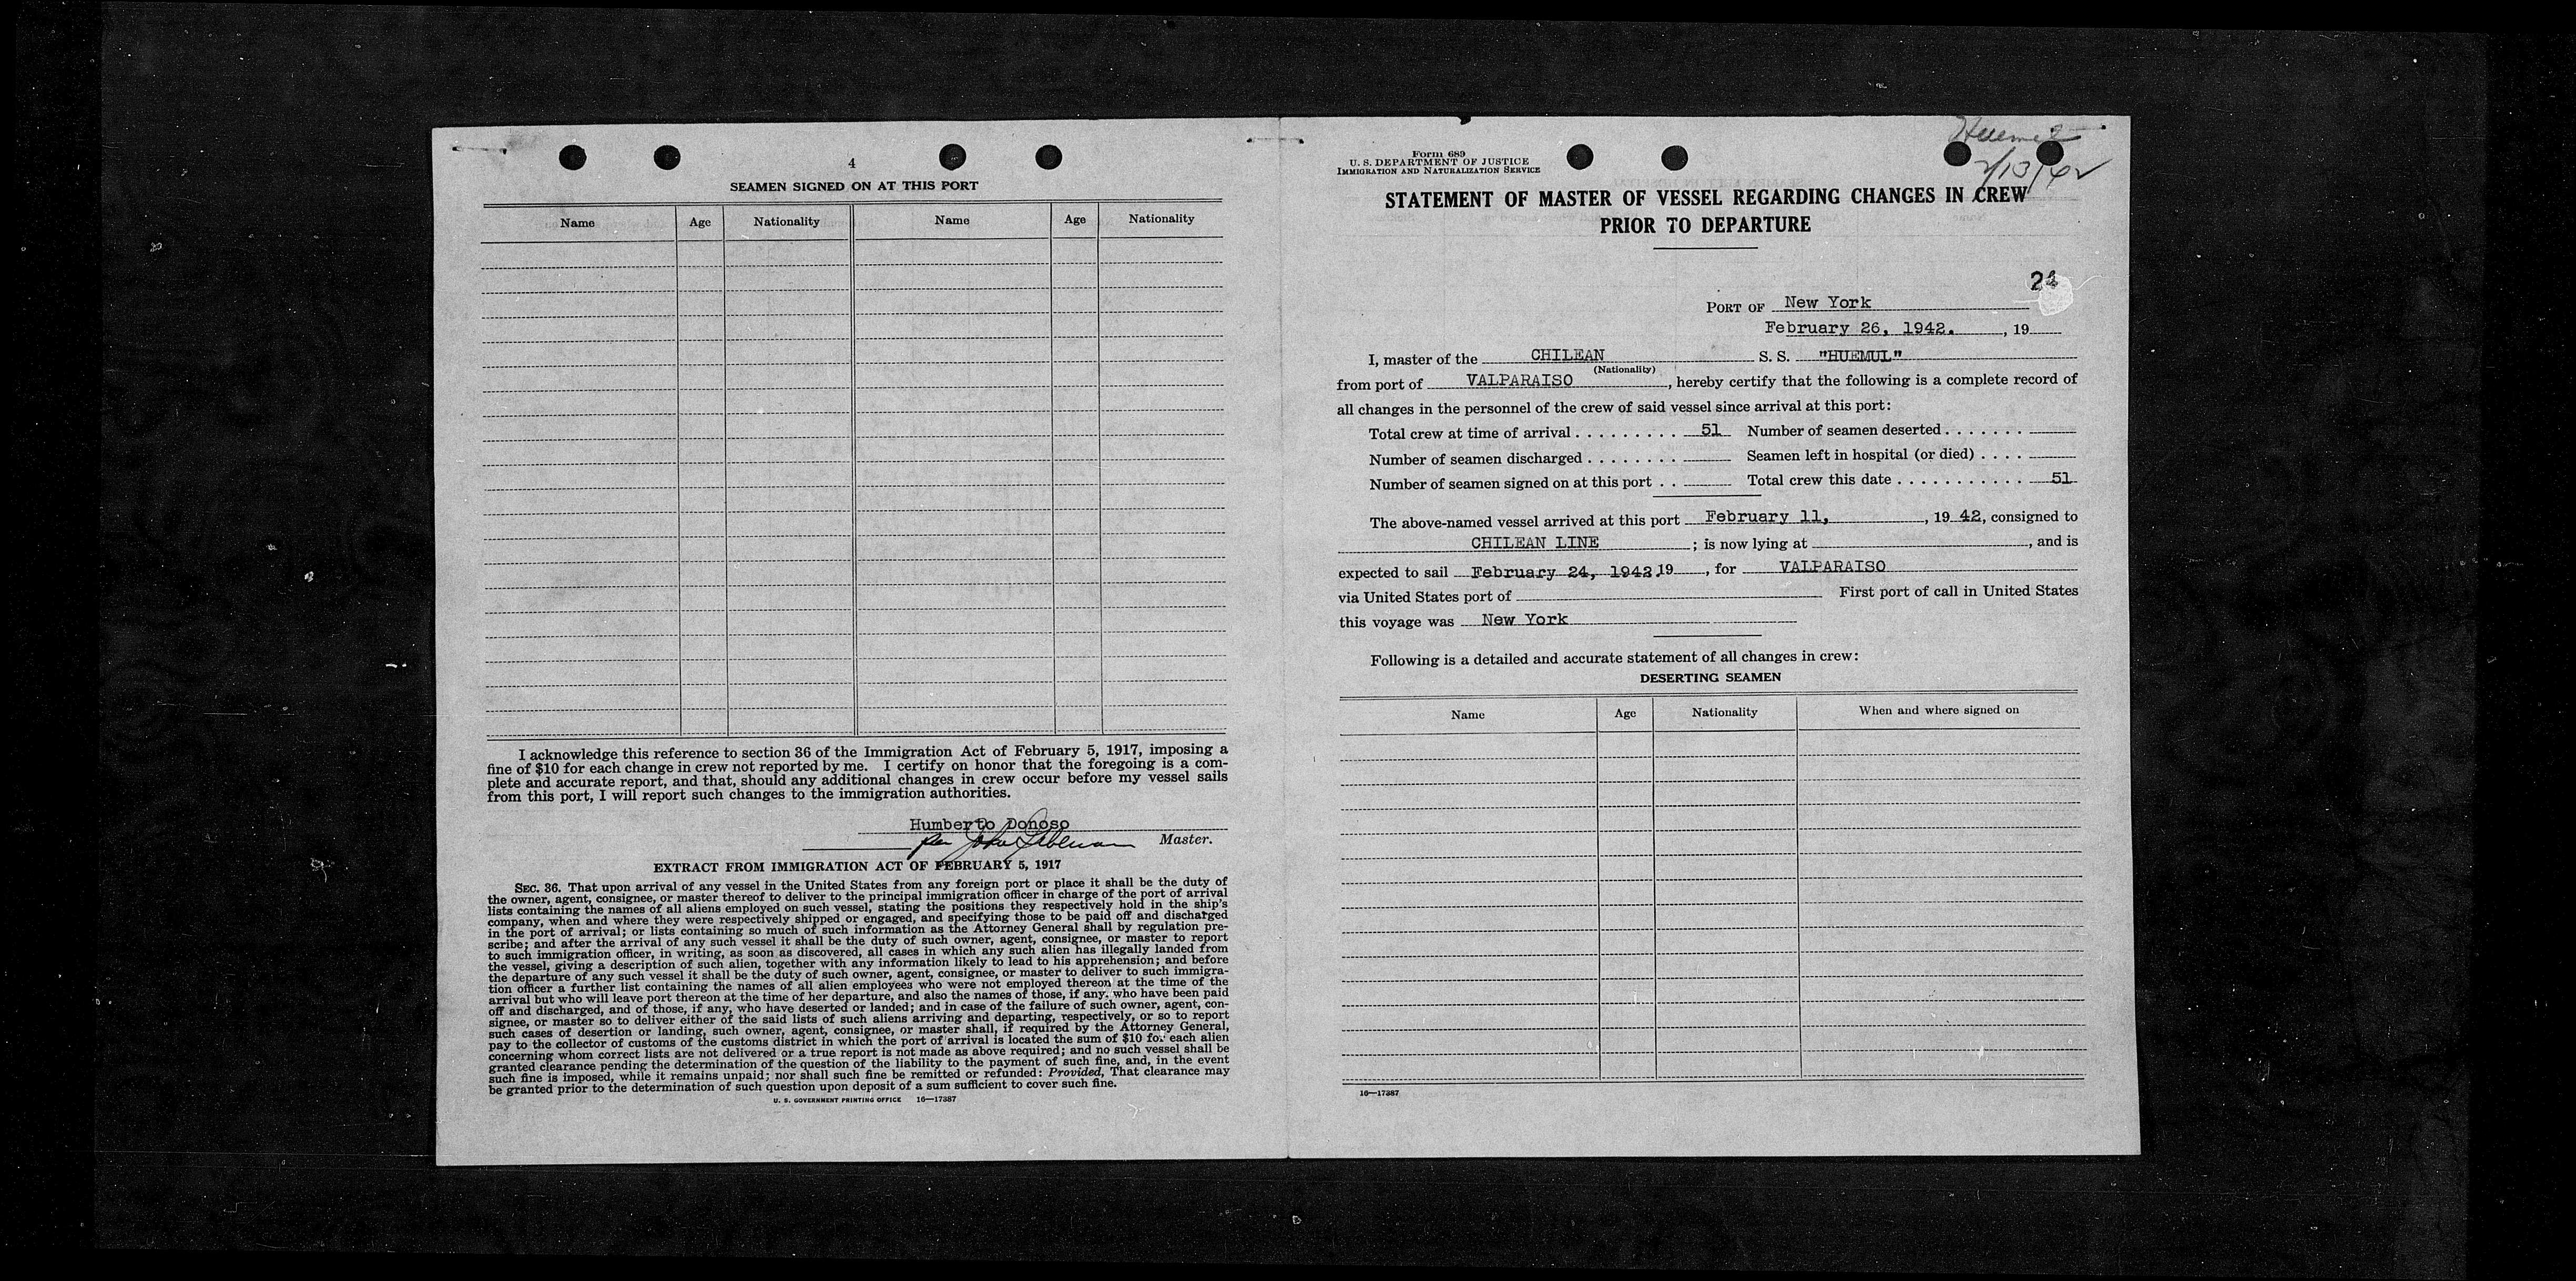 4
SEAMEN SIGNED ON AT THIS PORT
Name Age Nationality Name Age Nationality
I acknowledge this reference to section 36 of the Immigration Act of February 5, 1917, imposing a
fine of $10 for each change in crew not reported by me. I certify on honor that the foregoing is a com-
plete and accurate report, and that, should any additional changes in crew occur before my vessel sails
from this port, I will report such changes to the immigration authorities.
Humberto Donoso
per John Master.
EXTRACT FROM IMMIGRATION ACT OF FEBRUARY 5, 1917
SEC. 36. That upon arrival of any vessel in the United States from any foreign port or place it shall be the duty of
the owner, agent, consignee, or master thereof to deliver to the principal immigration officer in charge of the port of arrival
lists containing the names of all aliens employed on such vessel, stating the positions they respectively hold in the ship's
company, when and where they were respectively shipped or engaged, and specifying those to be paid off and discharged
in the port of arrival; or lists containing so much of such information as the Attorney General shall by regulation pre-
scribe; and after the arrival of any such vessel it shall be the duty of such owner, agent, consignee, or master to report
to such immigration officer, in writing, as soon as discovered, all cases in which any such alien has illegally landed from
the vessel, giving a description of such alien, together with any information likely to lead to his apprehension; and before
the departure of any such vessel it shall be the duty of such owner, agent, consignee, or master to deliver to such immigra-
tion officer a further list containing the names of all alien employees who were not employed thereon at the time of the
arrival but who will leave port thereon at the time of her departure, and also the names of those, if any, who have been paid
off and discharged, and of those, if any, who have deserted or landed; and in case of the failure of such owner, agent, con-
signee, or master so to deliver either of the said lists of such aliens arriving and departing, respectively, or so to report
such cases of desertion or landing, such owner, agent, consignee, or master shall, if required by the Attorney General,
pay to the collector of customs of the customs district in which the port of arrival is located the sum of $10 for each alien
concerning whom correct lists are not delivered or a true report is not made as above required; and no such vessel shall be
granted clearance pending the determination of the question of the liability to the payment of such fine, and, in the event
such fine is imposed, while it remains unpaid; nor shall such fine be remitted or refunded: Provided, That clearance may
be granted prior to the determination of such question upon deposit of a sum sufficient to cover such fine.
U. S. GOVERNMENT PRINTING OFFICE 16—17387
Huemul
2/13/42
Form 689
U. S. DEPARTMENT OF JUSTICE
IMMIGRATION AND NATURALIZATION SERVICE
STATEMENT OF MASTER OF VESSEL REGARDING CHANGES IN CREW
PRIOR TO DEPARTURE
24
PORT OF New York
February 26, 1942. , 19
I, master of the CHILEAN S. S. "HUEMUL"
(Nationality)
from port of VALPARAISO , hereby certify that the following is a complete record of
all changes in the personnel of the crew of said vessel since arrival at this port:
Total crew at time of arrival . . . . . . . . . 51 Number of seamen deserted . . . . . . .
Number of seamen discharged . . . . . . . . Seamen left in hospital (or died) . . . .
Number of seamen signed on at this port . . Total crew this date . . . . . . . . . . . 51
The above-named vessel arrived at this port February 11, , 19 42, consigned to
CHILEAN LINE ; is now lying at , and is
expected to sail February 24, 1942. 19 , for VALPARAISO
via United States port of First port of call in United States
this voyage was New York
Following is a detailed and accurate statement of all changes in crew:
DESERTING SEAMEN
Name Age Nationality When and where signed on
16—17387